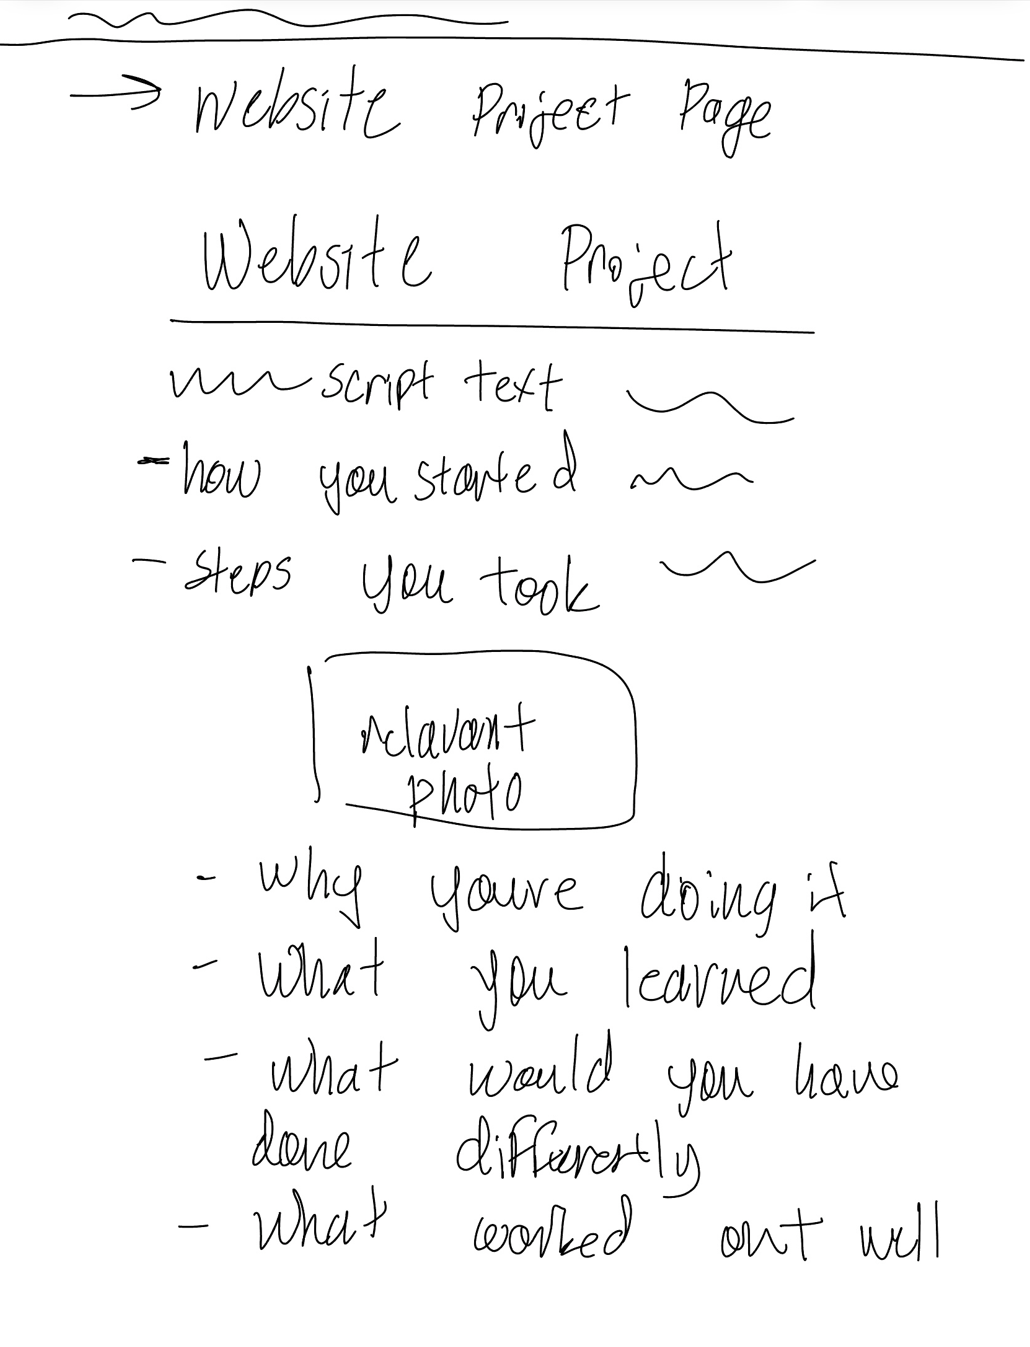 → Website Project Page
Website Project
script text
- how you started
- steps you took
relavant
photo
- why youre doing it
- what you learned
- what would you have
done differently
- what worked out well